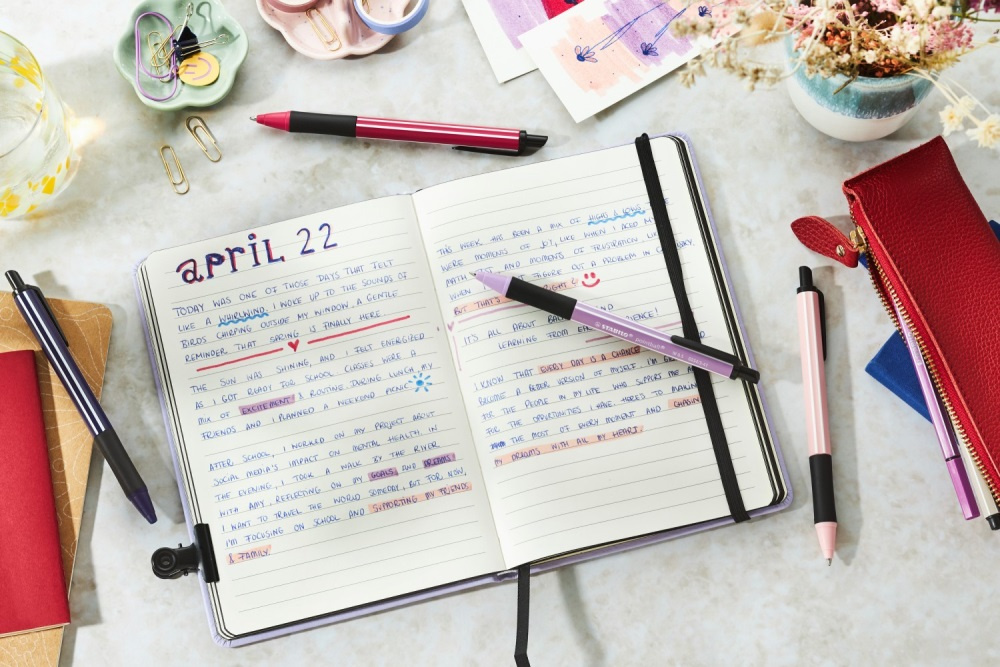 april 22
TODAY WAS ONE OF THOSE DAYS THAT FELT
LIKE A WHIRLWIND. I WOKE UP TO THE SOUNDS OF
BIRDS CHIRPING OUTSIDE MY WINDOW, A GENTLE
REMINDER THAT SPRING IS FINALLY HERE.
THE SUN WAS SHINING, AND I FELT ENERGIZED
AS I GOT READY FOR SCHOOL. CLASSES WERE A
MIX OF EXCITEMENT & ROUTINE. DURING LUNCH, MY
FRIENDS AND I PLANNED A WEEKEND PICNIC
AFTER SCHOOL, I WORKED ON MY PROJECT ABOUT
SOCIAL MEDIA'S IMPACT ON MENTAL HEALTH. IN
THE EVENING, I TOOK A WALK BY THE RIVER
WITH AMY, REFLECTING ON MY GOALS AND DREAMS!
I WANT TO TRAVEL THE WORLD SOMEDAY, BUT FOR NOW,
I'M FOCUSING ON SCHOOL AND SUPPORTING MY FRIENDS
& FAMILY.
THIS WEEK HAS BEEN A MIX OF HIGHS & LOWS
WERE MOMENTS OF JOY, LIKE WHEN I ACED MY
AND MOMENTS OF FRUSTRATION, LIKE
WHEN FIGURE OUT A PROBLEM IN
BUT THAT'S RIGHT
IT'S ALL ABOUT
LEARNING FROM
I KNOW THAT EVERY DAY IS A CHANCE
BECOME A BETTER VERSION OF MYSELF. I'M
FOR THE PEOPLE IN MY LIFE WHO SUPPORT ME
FOR THE OPPORTUNITIES I HAVE. HERE'S TO MAKING
THE MOST OF EVERY MOMENT AND CHASING
MY DREAMS WITH ALL MY HEART.
STABILO